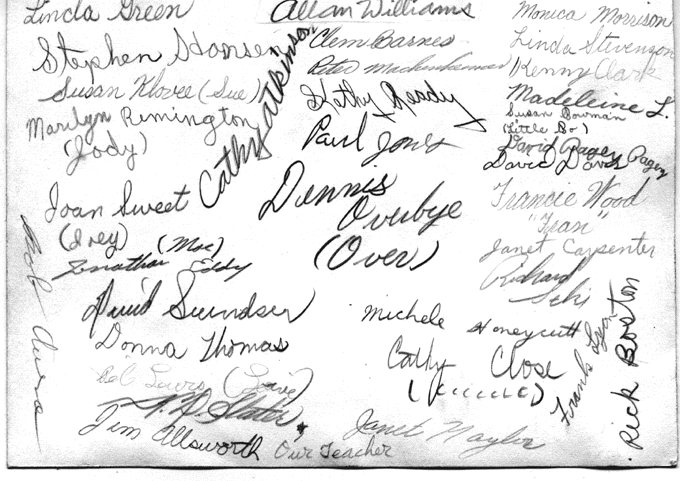 Linda Green
Stephen Hansen
Susan Klovee (Sue)
Marilyn Remington
(Jody)
Joan Sweet
(Ivey)
(Moe)
Jonathan Eddy
David
Donna Thomas
Bob Lewis
Jim Allsworth
Our Teacher
Cathy Atkinson
Allan Williams
Clem Barnes
Peter
Kathy Ready
Paul Jones
Dennis
Overbye
(Over)
Michele Honeycutt
Cathy Close
Janet Naylor
Monica Morrison
Linda Stevenson
Kenny Clark
Madeleine L.
Susan Bowman
(Little Bo)
David Pagey Pagey
David Davis
Francie Wood
"Fran"
Janet Carpenter
Richard
Frank
Rick Boston
Bob